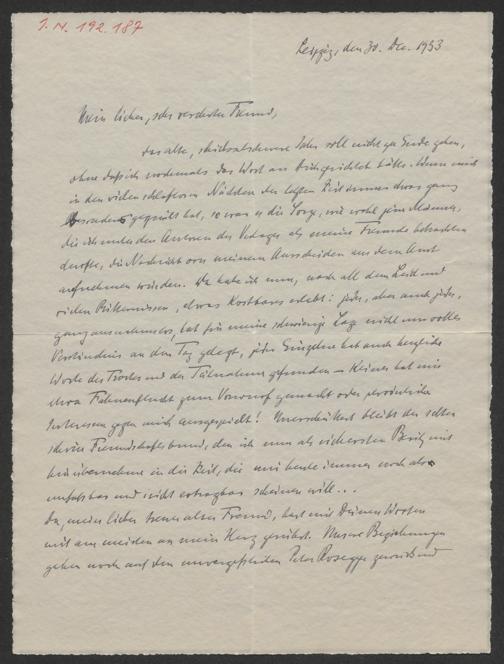 I. N. 192.187
Leipzig, den 30. Dez. 1953
Mein lieber, sehr verehrter Freund,
das alte, schicksalsschwere Jahr soll nicht zu Ende gehen,
ohne daß ich nochmals das Wort an Dich gerichtet hätte. Wenn mich
in den vielen schlaflosen Nächten der letzten Zeit immer etwas ganz
besonders gequält hat, so war es die Sorge, wie wohl jene Männer,
die ich unter den Autoren des Verlages als meine Freunde betrachten
durfte, die Nachricht von meinem Ausscheiden aus dem Amt
aufnehmen würden. Da habe ich nun, nach all dem Leid und
vielen Bitternissen, etwas Kostbares erlebt: jeder, aber auch jeder,
ganz ausnahmslos, hat für meine schwierige Lage nicht nur volles
Verständnis an den Tag gelegt, jeder Einzelne hat auch
Worte des Trostes und der Teilnahme gefunden – Keiner hat mir
etwa Fahnenflucht zum Vorwurf gemacht oder persönliche
Interessen gegen mich ausgespielt! Unerschüttert bleibt der selten
schöne Freundschaftsbund, den ich nun als sichersten Besitz mit
hinübernehme in die Zeit, die mir heute immer noch als
unfaßbar und nicht ertragbar scheinen will...
Du, mein lieber treuer alter Freund, hast mit Deinen Worten
mit am meisten an mein Herz gerührt. Unsere Beziehungen
gehen noch auf den unvergeßlichen Peter Rosegger zurück und